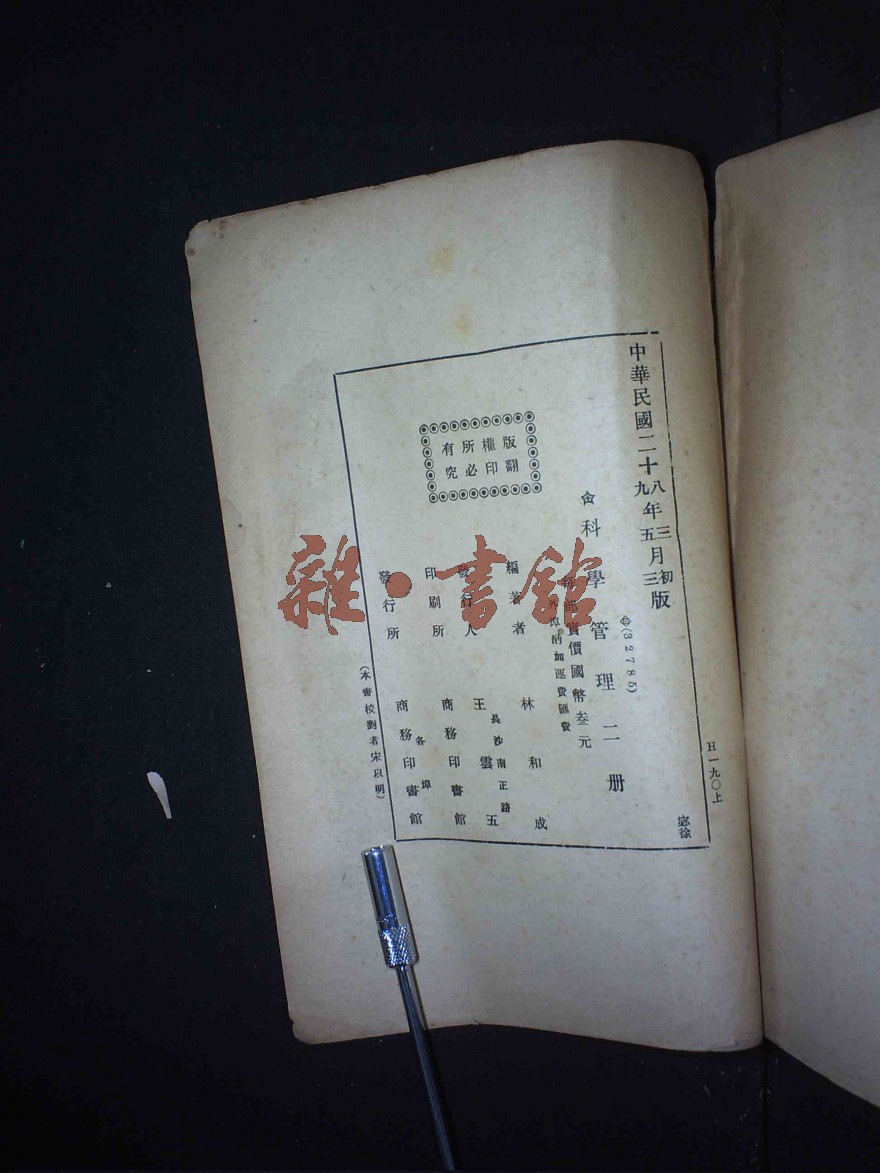 中華民國二十八年三月初版
九 五 三
H一九〇上
㊥(32785)
科學管理二册
每部實價國幣叁元
外埠酌加運費匯費
編著者 林和成
長沙南正路
發行人 王雲五
印刷所 商務印書館
各埠
發行所 商務印書館
版權所有
翻印必究
(本書校對者宋以明)
徐
雜·書館